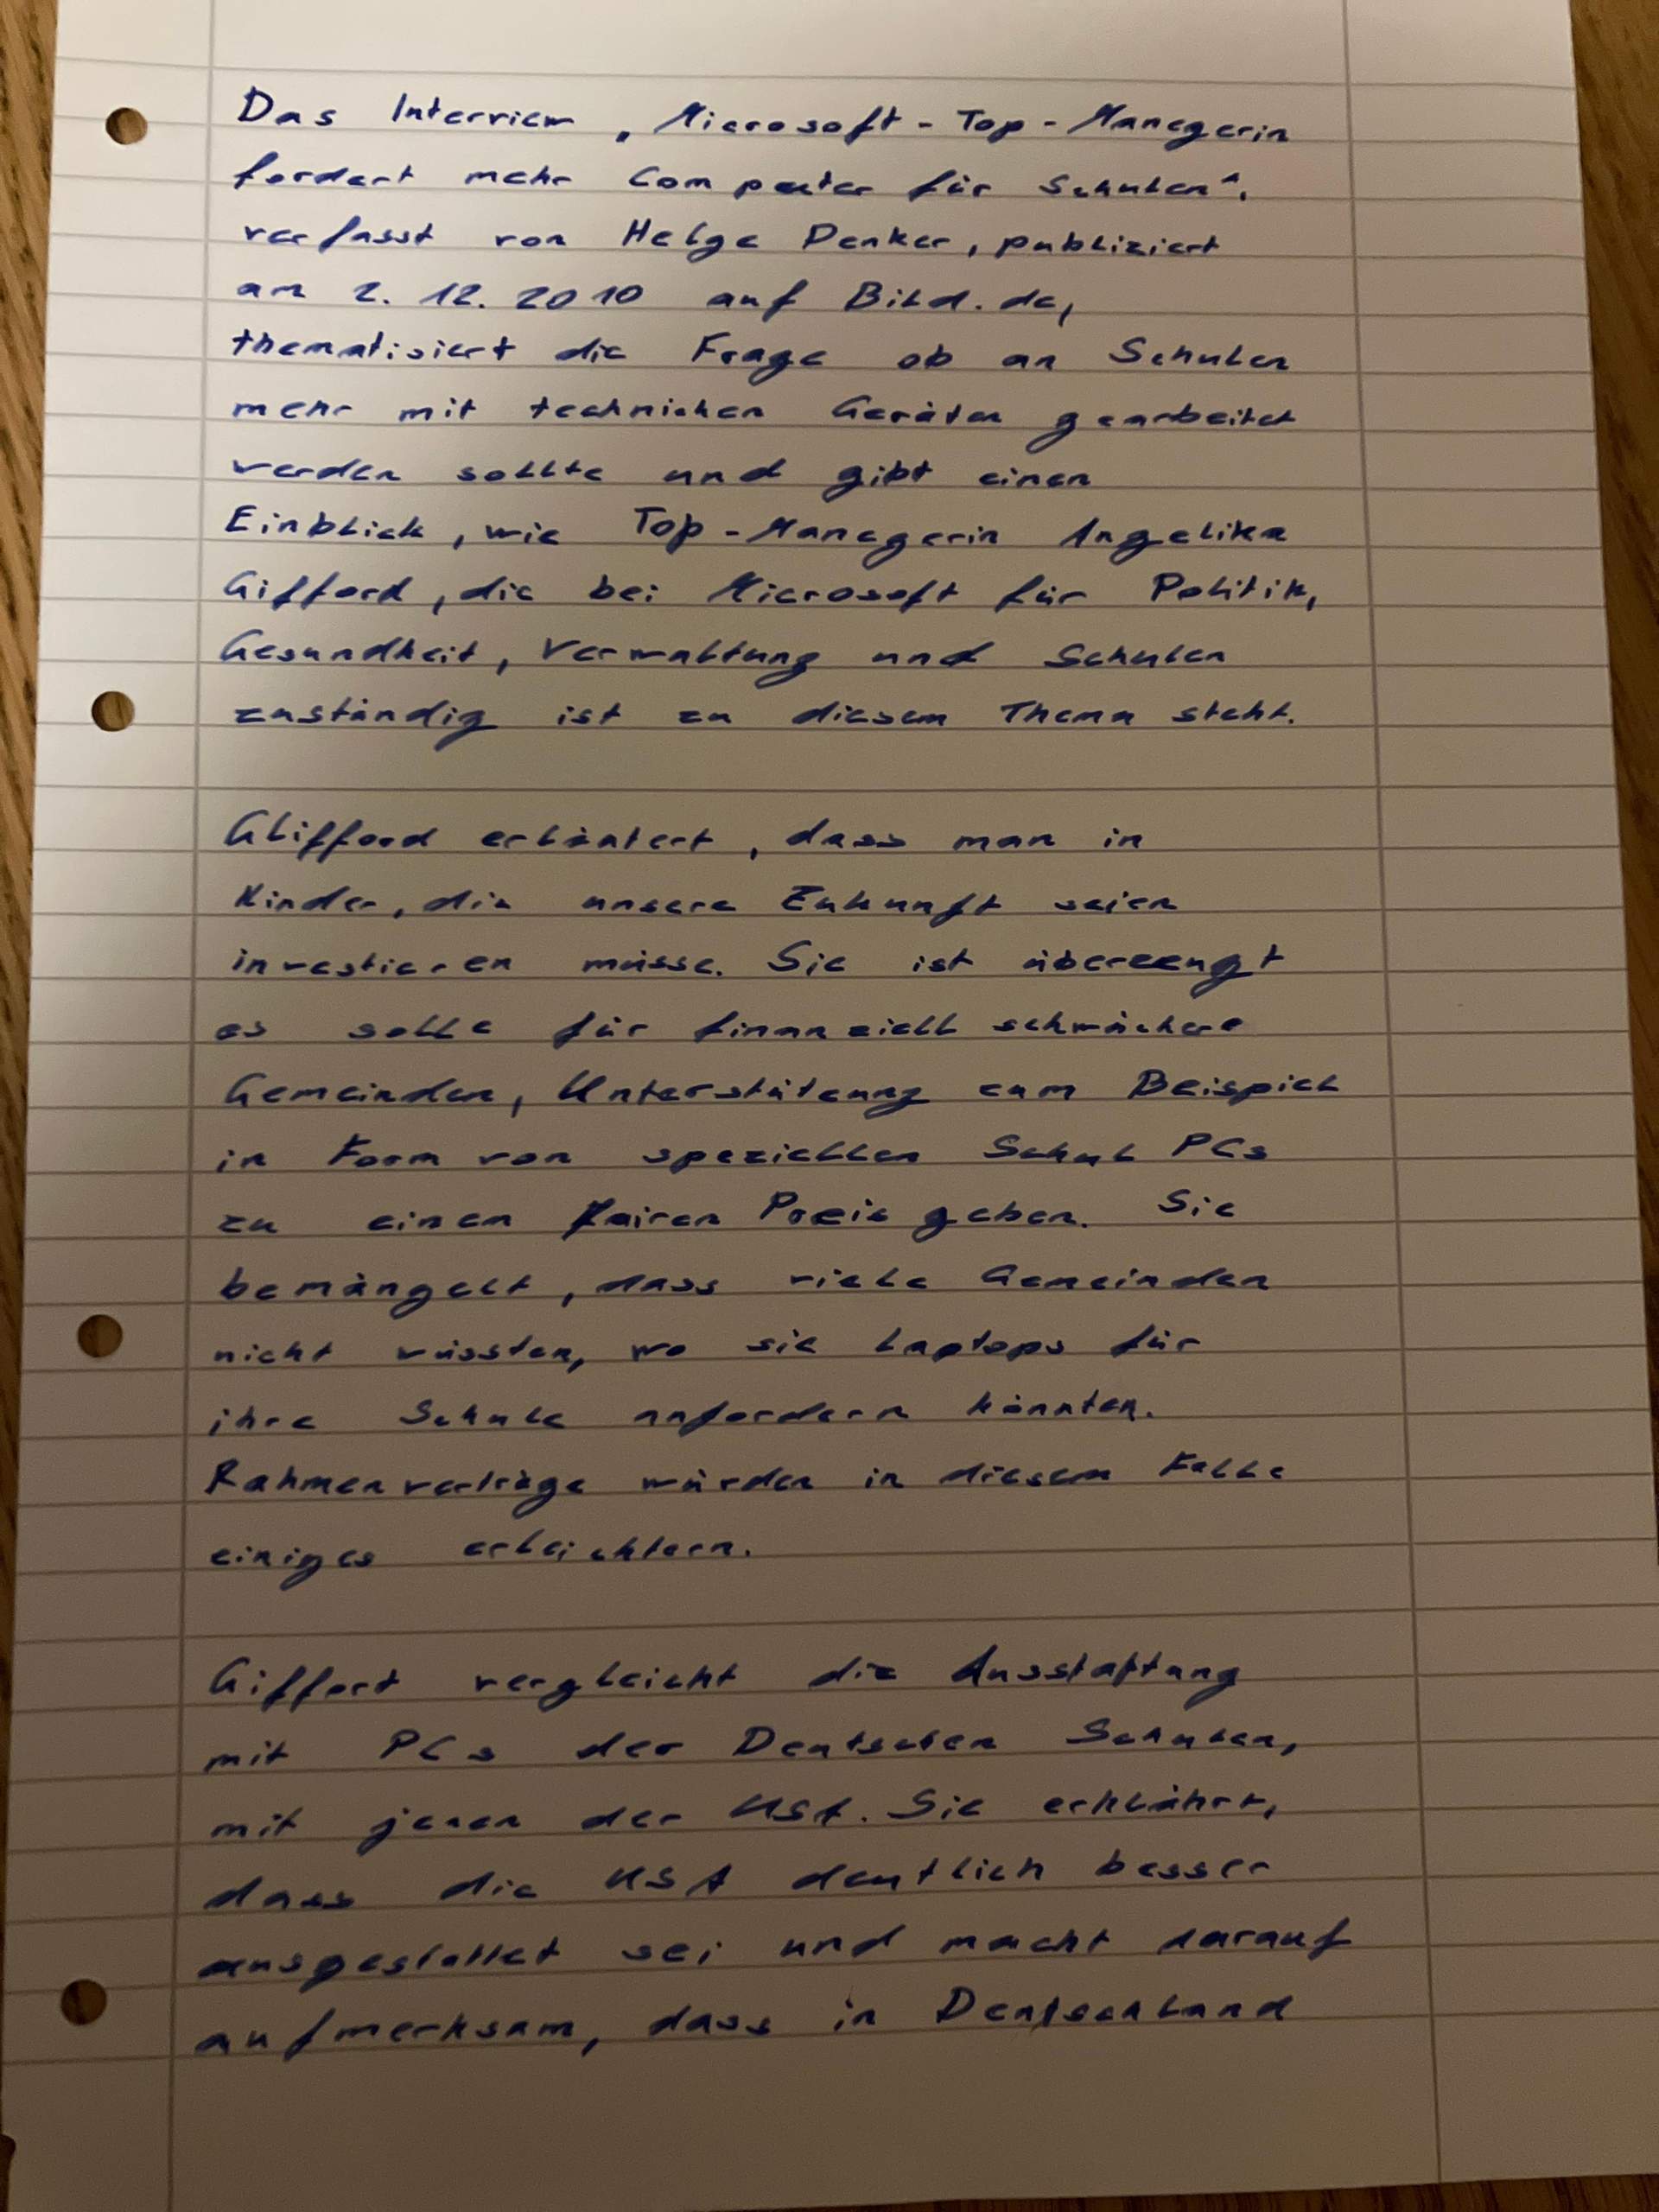 Das Interview „Microsoft-Top-Managerin
fordert mehr Computer für Schulen",
verfasst von Helge Denker, publiziert
am 2. 12. 2010 auf Bild.de,
thematisiert die Frage ob an Schulen
mehr mit technichen Geräten gearbeitet
werden sollte und gibt einen
Einblick, wie Top-Managerin Angelika
Gifford, die bei Microsoft für Politik,
Gesundheit, Verwaltung und Schulen
zuständig ist zu diesem Thema steht.
Glifford erläutert, dass man in
Kinder, die unsere Zukunft seien
investieren müsse. Sie ist überzeugt
es solle für finanziell schwächere
Gemeinden, Unterstützung zum Beispiel
in Form von speziellen Schul PCs
zu einen fairen Preis geben. Sie
bemängelt, dass viele Gemeinden
nicht wüssten, wo sie Laptops für
ihre Schule anfordern könnten.
Rahmenverträge würden in diesem Falle
einiges erleichtern.
Giffort vergleicht die Ausstattung
mit PCs der Deutschen Schulen,
mit jenen der USA. Sie erklährt,
dass die USA deutlich besser
ausgestattet sei und macht darauf
aufmerksam, dass in Deutschland